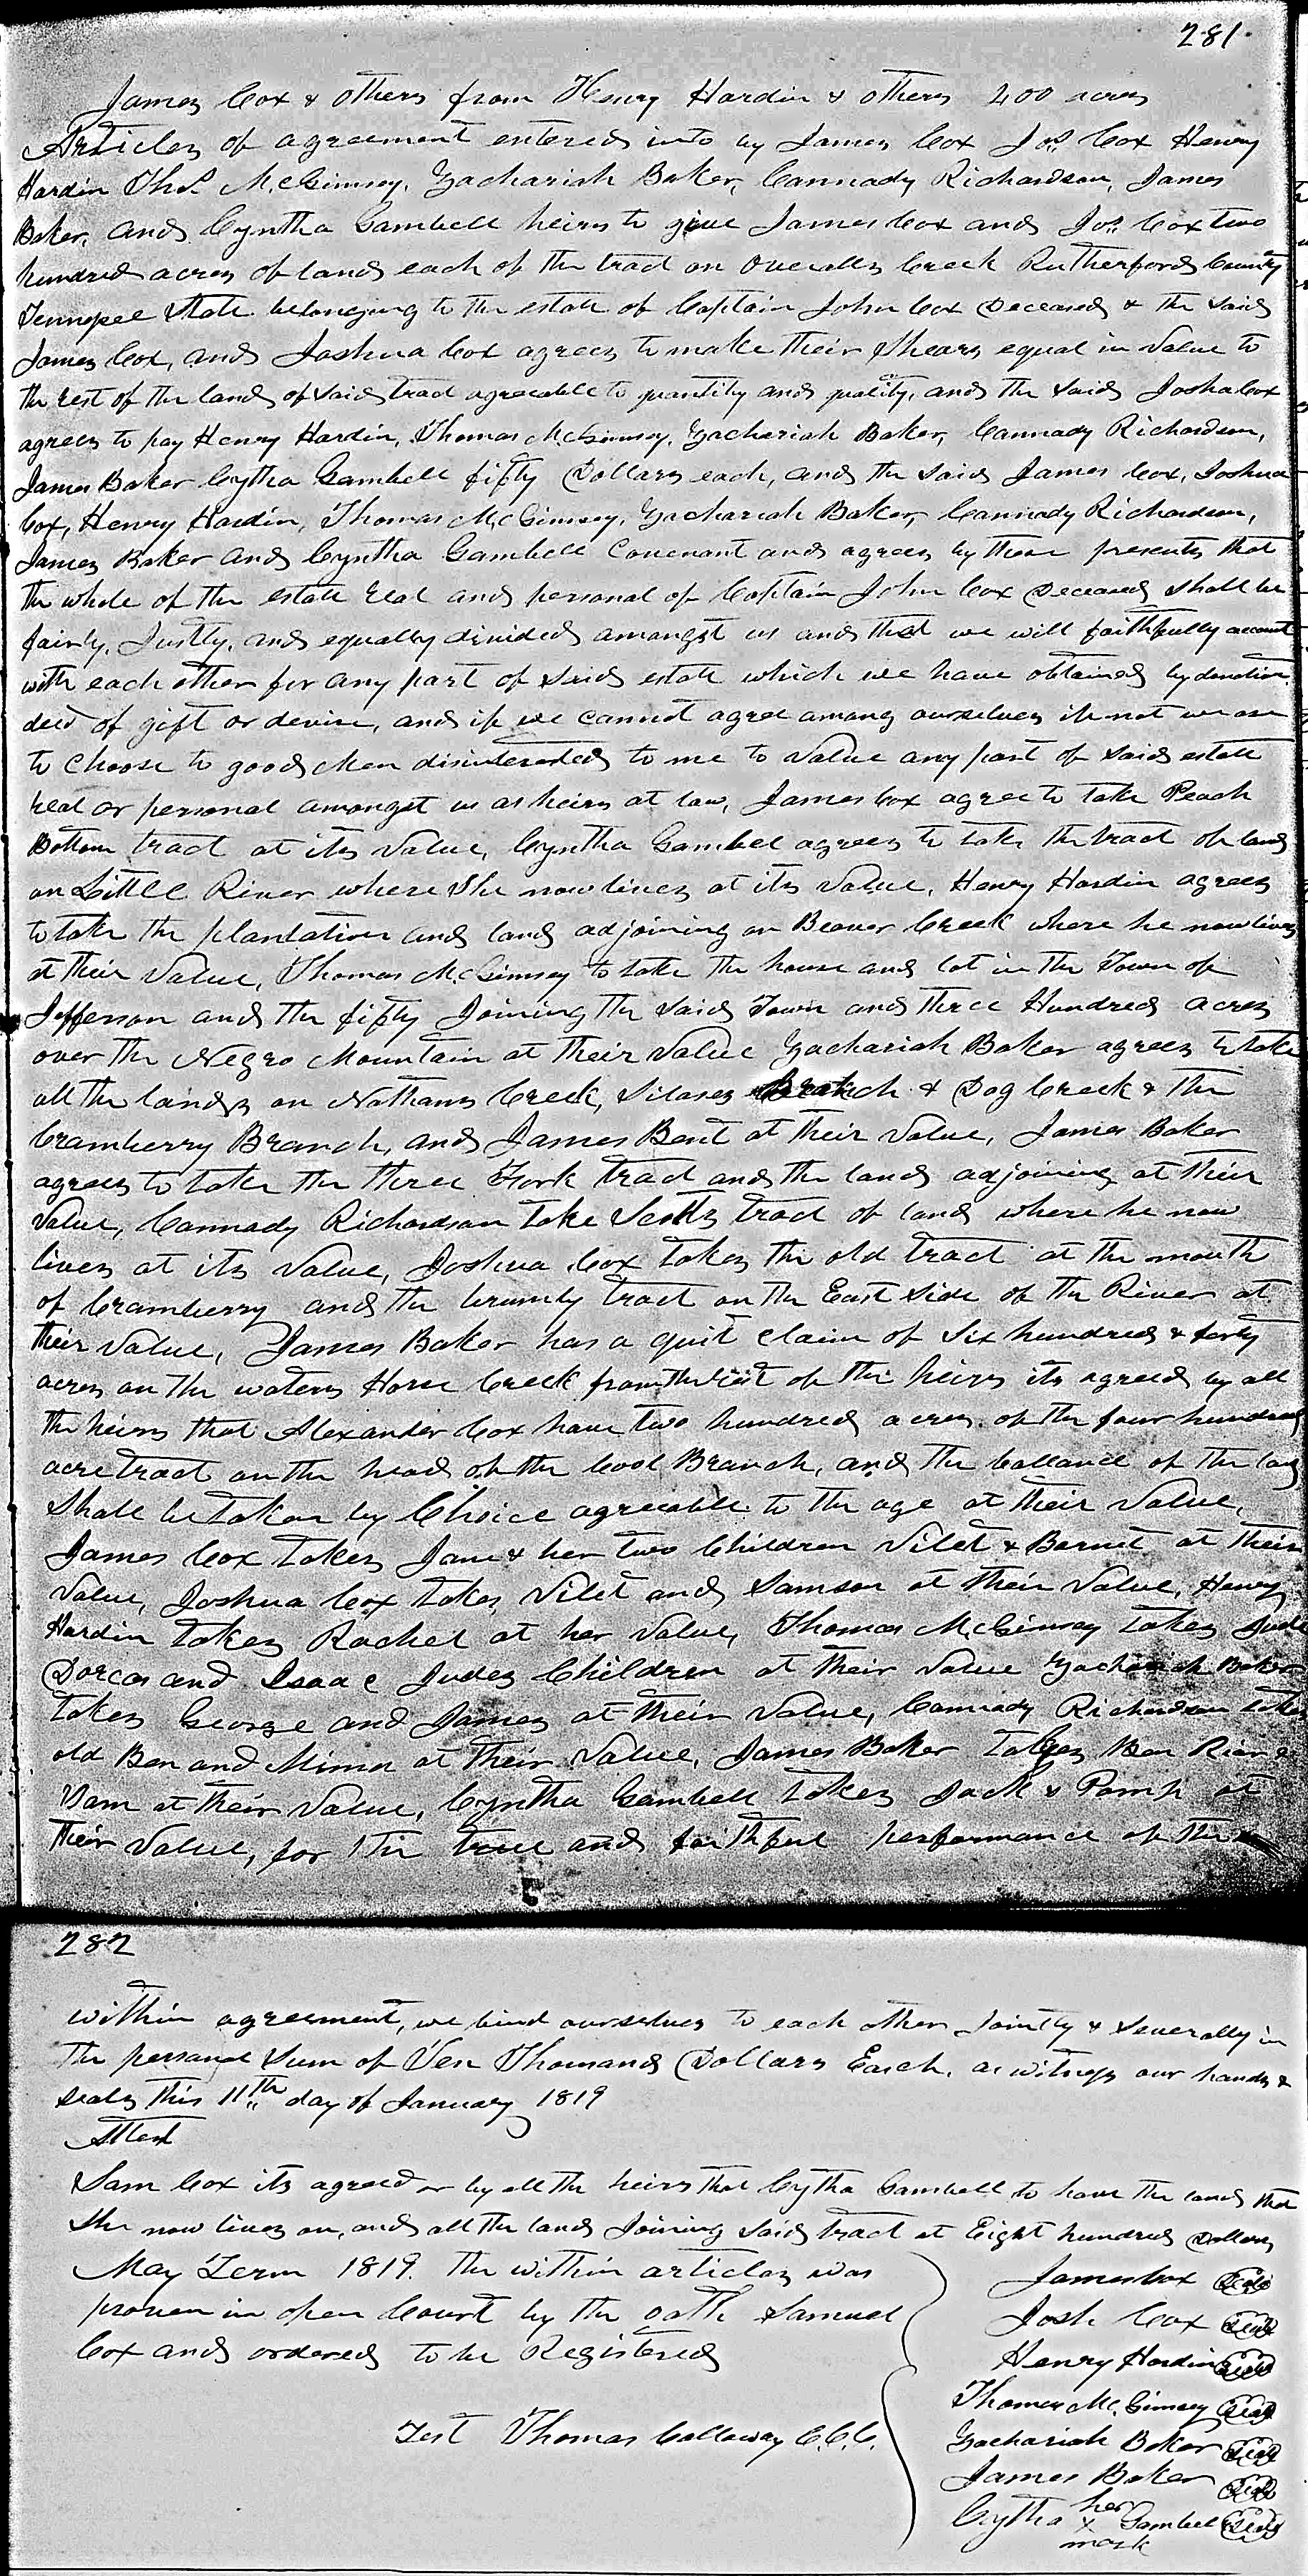 281
James Cox & others from Henry Hardin & others 400 acres
Articles of agreement entered into by James Cox Jos. Cox Henry
Hardin Thos. McGimsey, Zachariah Baker, Cannady Richardson, James
Baker, and Cyntha Gambell heirs to give James Cox and Jos. Cox two
hundred acres of land each of the tract on Overalls Creek Rutherford County
Tennessee State belonging to the estate of Captain John Cox Deceased & the said
James Cox, and Joshua Cox agrees to make their Shears equal in Value to
the rest of the land of said tract agreeable to quantity and quality, and the said Josha Cox
agrees to pay Henry Hardin, Thomas McGimsey, Zachariah Baker, Cannady Richardson,
James Baker Cytha Gambell fifty Dollars each, and the said James Cox, Joshua
Cox, Henry Hardin, Thomas McGimsey, Zachariah Baker, Cannady Richardson,
James Baker and Cyntha Gambell Covenant and agrees by these presents that
the whole of the estate real and personal of Captain John Cox Deceased shall be
fairly, Justly, and equally divided amongst us and that we will faithfully account
with each other for any part of said estate which we have obtained by donation
deed of gift or devise, and if we cannot agree among ourselves if not we are
to choose to good Men disinterested to me to Value any part of said estate
real or personal amongst us as heirs at law, James Cox agree to take Peach
Bottom tract at its Value, Cyntha Gambel agrees to take the tract of land
on Little River where She now lives at its Value, Henry Hardin agrees
to take the plantation and land adjoining on Beaver Creek where he now lives
at their Value, Thomas McGimsey to take the house and lot in the Town of
Jefferson and the fifty Joining the said Town and three Hundred acres
over the Negro Mountain at their Value Zachariah Baker agrees to take
all the lands on Nathans Creek, Silases Branch & Dog Creek & the
Cramberry Branch, and James Bent at their Value, James Baker
agrees to take the three Fork tract and the land adjoining at their
Value, Cannady Richardson take Scotts tract of land where he now
lives at its Value, Joshua Cox takes the old tract at the mouth
of Cramberry and the Crumly tract on the East side of the River at
their Value, James Baker has a quit claim of Six hundred & forty
acres on the waters Horse Creek from the rest of the heirs its agreed by all
the heirs that Alexander Cox have two hundred acres of the four hundred
acre tract on the head of the Cool Branch, and the ballance of the land
Shall be taken by Choice agreeable to the age at their Value,
James Cox takes Jane & her two Children Vilet & Barnet at their
Value, Joshua Cox takes Vilet and Samson at their Value, Henry
Hardin takes Rachel at her Value, Thomas McGimsey takes Jude
Dorcas and Isaac Judes Children at their Value Zachariah Baker
takes George and James at their Value, Cannady Richardson takes
old Ben and Mima at their Value, James Baker takes Ben
at their Value, Cyntha Gambell takes Jack & Pomp at
their Value, for the true and faithful performance of the
282
within agreement, we bind ourselves to each other Jointly & Severally in
the personal Sum of Ten Thousand Dollars Each, as witness our hands &
seals this 11th day of January 1819
Attest
Sam Cox its agreed on by all the heirs that Cytha Gambell to have the land that
she now lives on, and all the land Joining said tract at Eight hundred Dollars
May Term 1819. the within articles was
proven in open Court by the oath Samuel
Cox and ordered to be Registered
Test Thomas Calloway C.C.C.
James Cox Seal
Josh Cox Seal
Henry Hardin Seal
Thomas McGimsey Seal
Zachariah Baker Seal
James Baker Seal
Cytha her x mark Gambell Seal